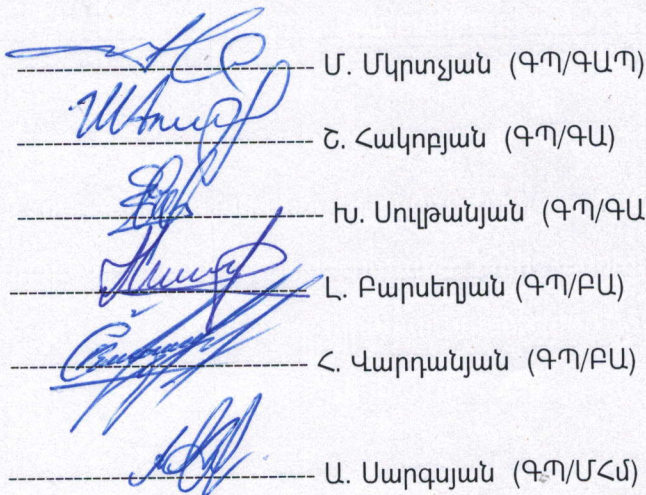 Մ. Մկրտչյան (ԳՊ/ԳԱՊ)
Շ. Հակոբյան (ԳՊ/ԳԱ)
Խ. Սուլթանյան (ԳՊ/ԳԱ
Լ. Բարսեղյան (ԳՊ/ԲԱ)
Հ. Վարդանյան (ԳՊ/ԲԱ)
Ա. Սարգսյան (ԳՊ/ՄՀմ)